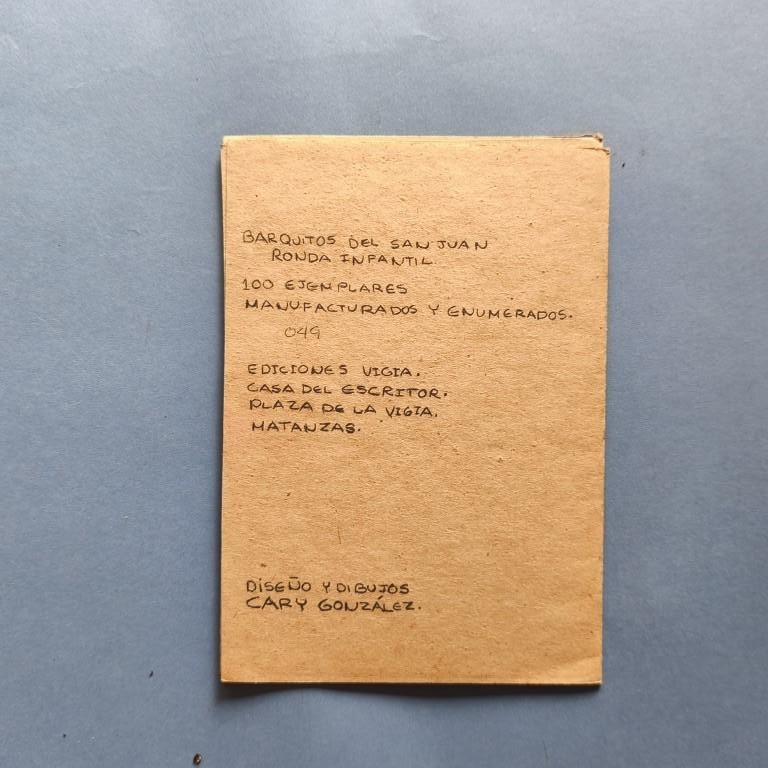 BARQUITOS DEL SAN JUAN
RONDA INFANTIL
100 EJEMPLARES
MANUFACTURADOS Y ENUMERADOS.
049
EDICIONES VIGIA.
CASA DEL ESCRITOR.
PLAZA DE LA VIGIA.
MATANZAS.
DISEÑO Y DIBUJOS
CARY GONZÁLEZ.